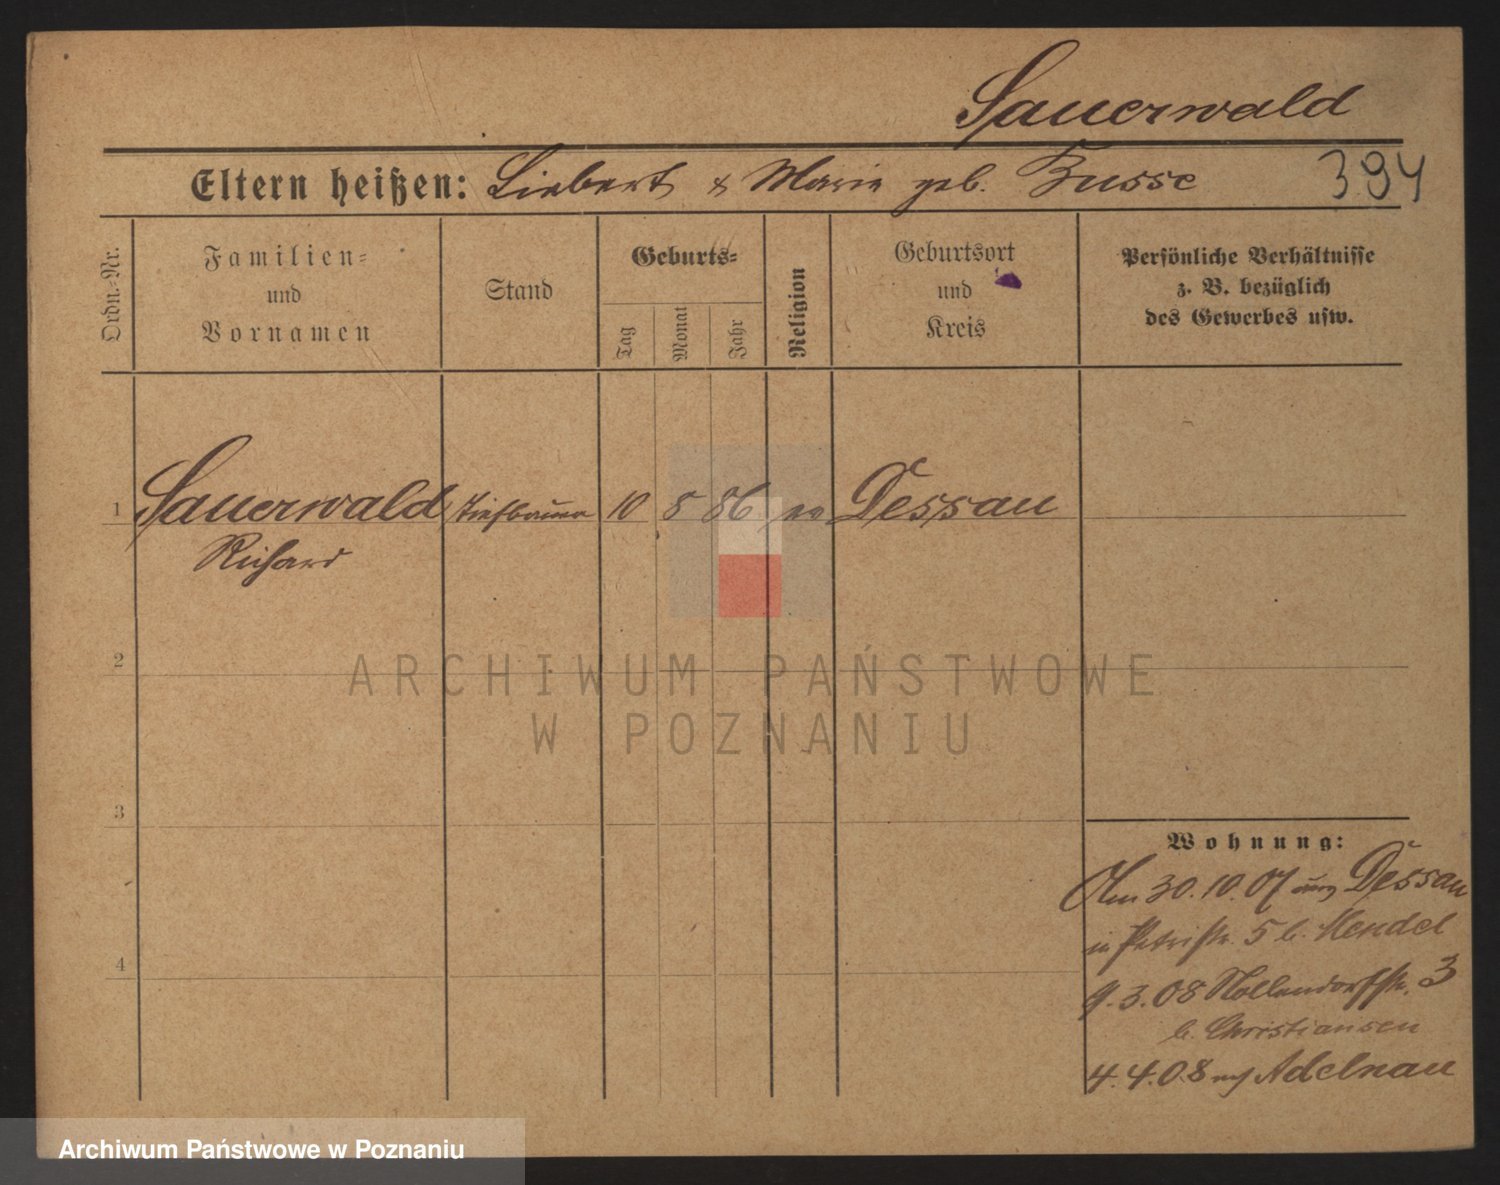 Sauerwald
Eltern heißen: Liebert & Marie geb. Busse
394
Ordn.-Nr.
Familien-
und
Vornamen
Stand
Geburts-
Tag
Monat
Jahr
Religion
Geburtsort
und
Kreis
Persönliche Verhältnisse
z. B. bezüglich
des Gewerbes usw.
1 Sauerwald 10 8 86 ev Dessau
Richard
2
ARCHIWUM PAŃSTWOWE
W POZNANIU
3
Wohnung:
Am 30.10.07 aus Dessau
in Petristr. 5 b. Mendel
4
9.3.08 Nollendorfstr. 3
b. Christiansen
4.4.08 nach Adelnau
Archiwum Państwowe w Poznaniu